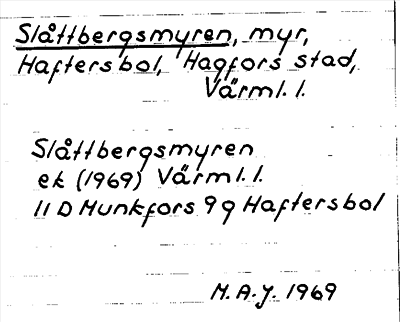 Slåttbergsmyren, myr,
Haftersbol, Hagfors stad,
Värml. l.
Slåttbergsmyren
ek (1969) Värml. l.
11 D Munkfors 9 g Haftersbol
M. A. J. 1969